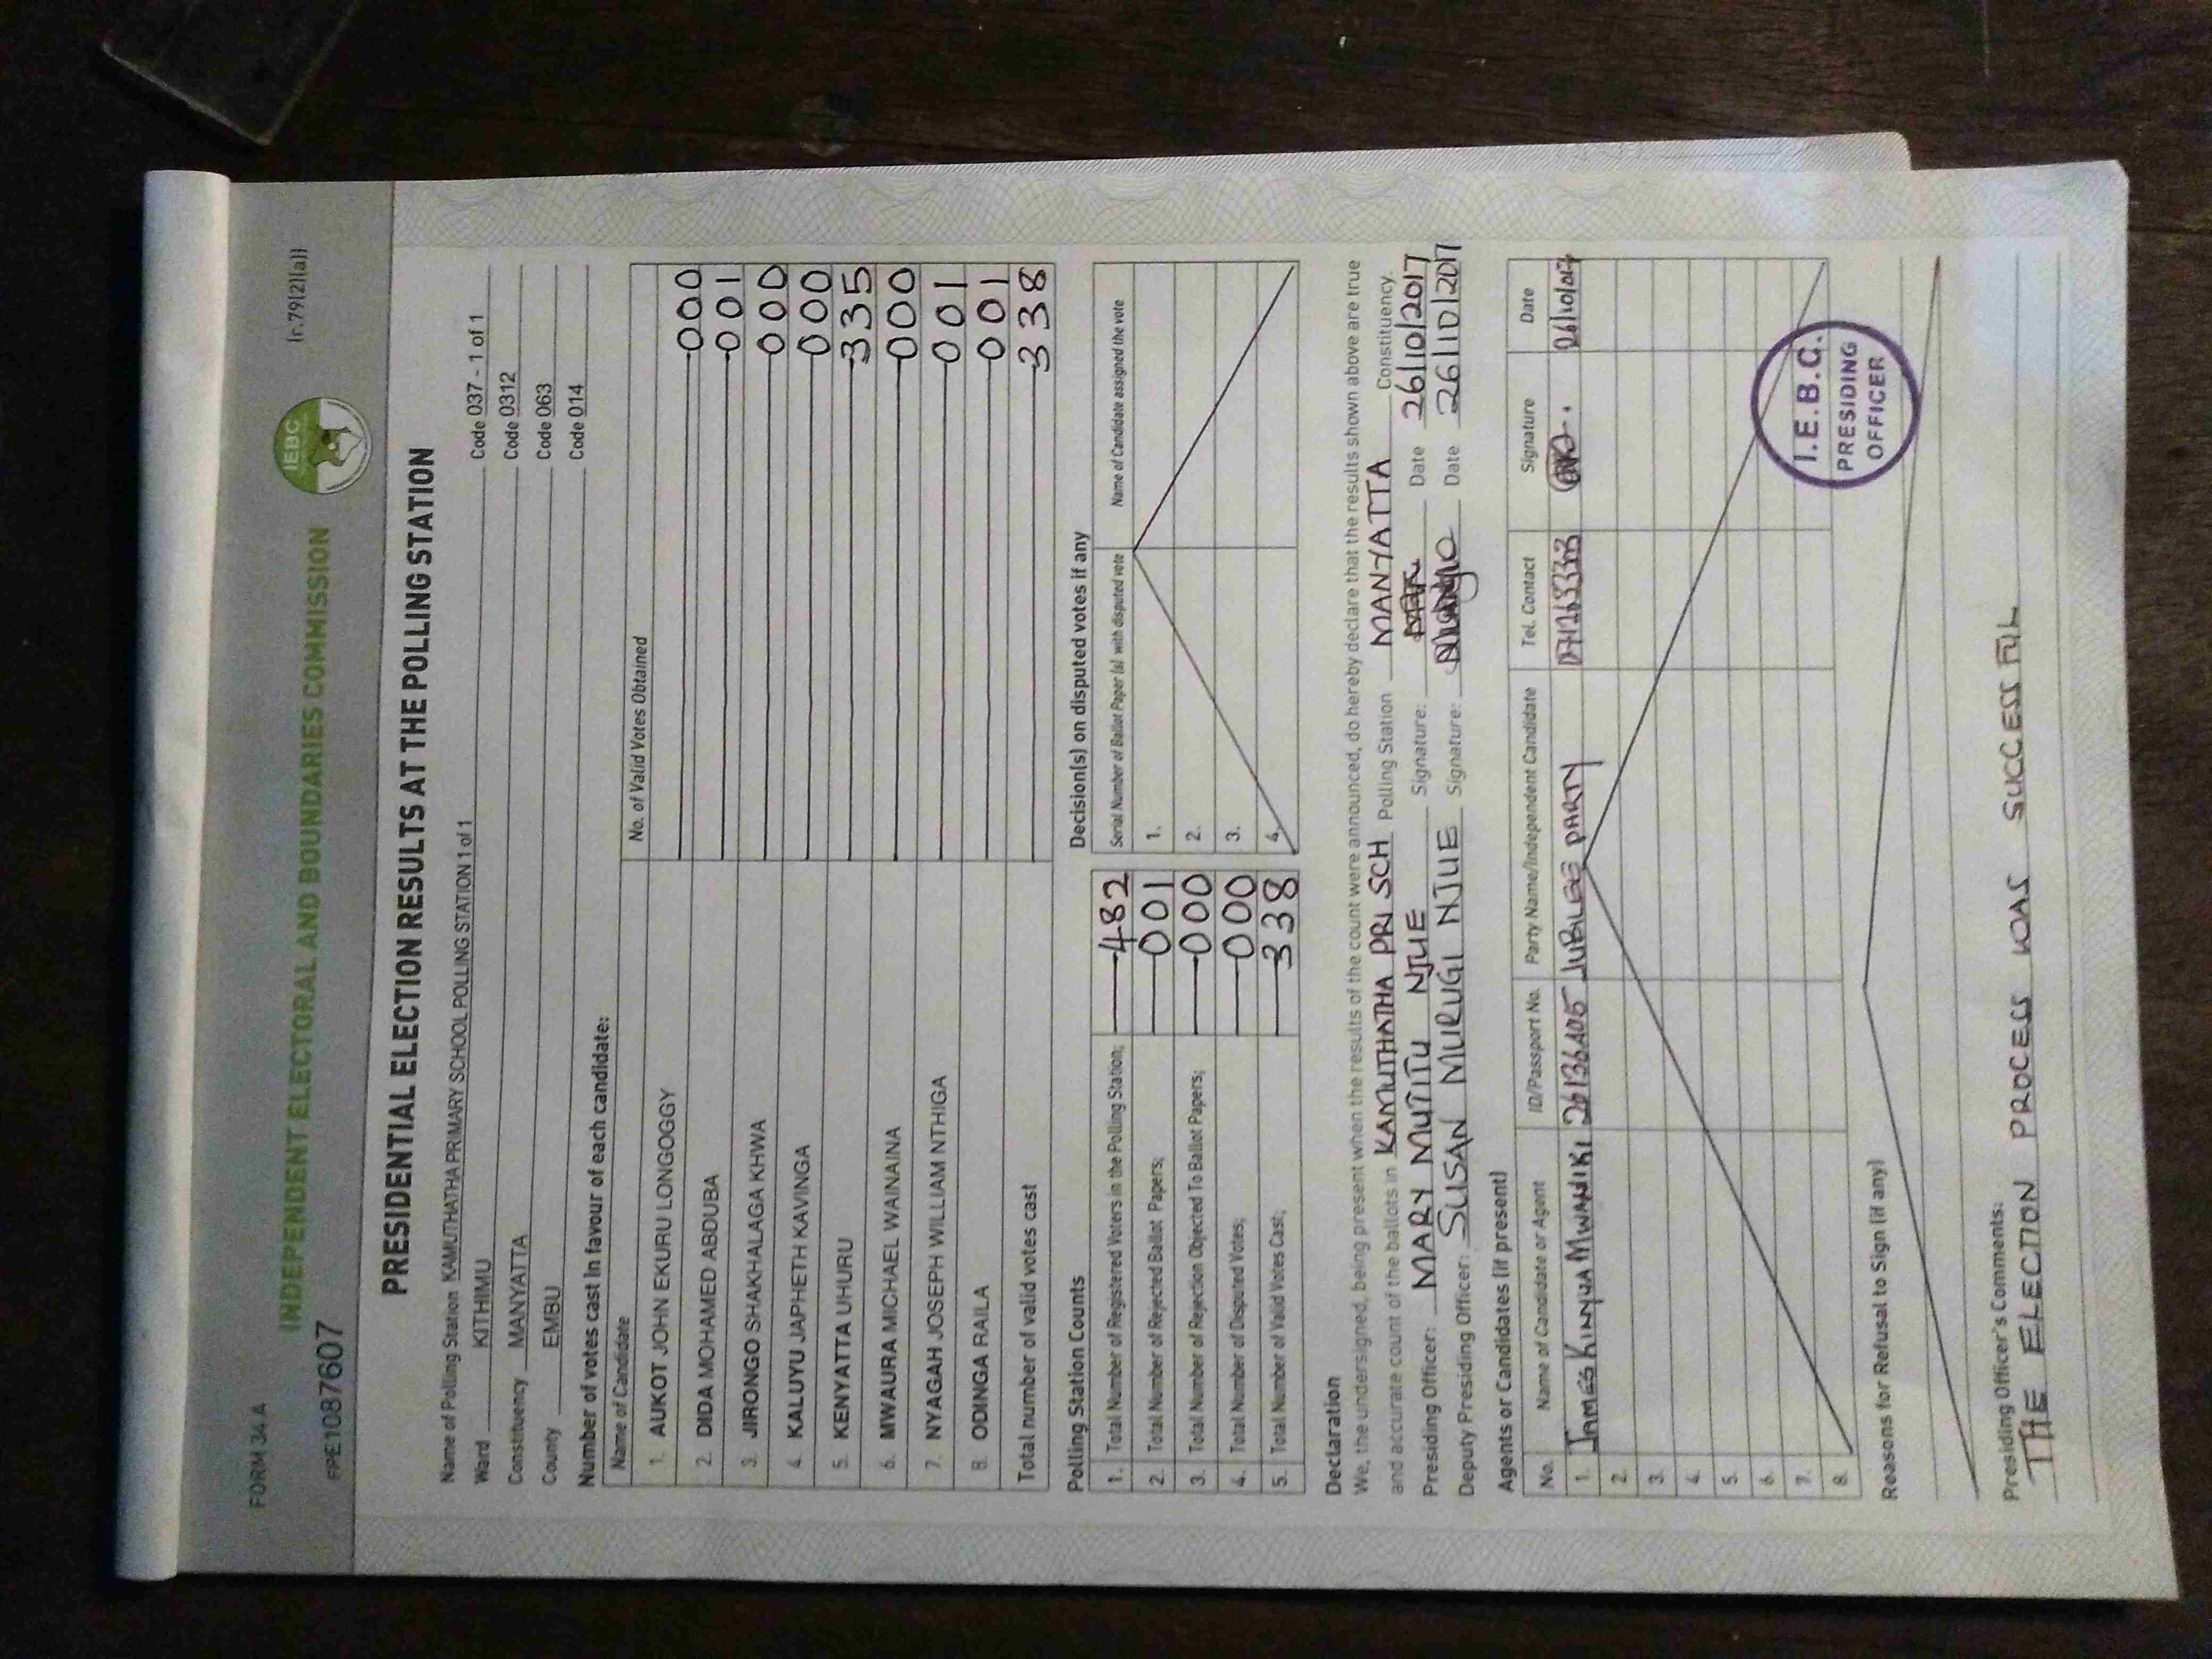 FORM 34 A
(r.79(2)(a))
INDEPENDENT ELECTORAL AND BOUNDARIES COMMISSION
IEBC
FPE1087607
PRESIDENTIAL ELECTION RESULTS AT THE POLLING STATION
Name of Polling Station KAMUTHATHA PRIMARY SCHOOL POLLING STATION 1 of 1 Code 037 - 1 of 1
Ward KITHIMU Code 0312
Constituency MANYATTA Code 063
County EMBU Code 014
Number of votes cast in favour of each candidate:
Name of Candidate No. of Valid Votes Obtained
1. AUKOT JOHN EKURU LONGOGGY 000
2. DIDA MOHAMED ABDUBA 001
3. JIRONGO SHAKHALAGA KHWA 000
4. KALUYU JAPHETH KAVINGA 000
5. KENYATTA UHURU 335
6. MWAURA MICHAEL WAINAINA 000
7. NYAGAH JOSEPH WILLIAM NTHIGA 001
8. ODINGA RAILA 001
Total number of valid votes cast 338
Polling Station Counts Decision(s) on disputed votes if any
Serial Number of Ballot Paper (s) with disputed vote Name of Candidate assigned the vote
1. Total Number of Registered Voters in the Polling Station; 482 1.
2. Total Number of Rejected Ballot Papers; 001 2.
3. Total Number of Rejection Objected To Ballot Papers; 000 3.
4. Total Number of Disputed Votes; 000 4.
5. Total Number of Valid Votes Cast; 338
Declaration
We, the undersigned, being present when the results of the count were announced, do hereby declare that the results shown above are true
and accurate count of the ballots in KAMUTHATHA PRI SCH Polling Station MANYATTA Constituency.
Presiding Officer: MARY MUTITU NJUE Signature: Date 26/10/2017
Deputy Presiding Officer: SUSAN MURUGI NJUE Signature: Date 26/10/2017
Agents or Candidates (if present)
No. Name of Candidate or Agent ID/Passport No. Party Name/Independent Candidate Tel. Contact Signature Date
1. JAMES KINYUA MWANIKI 26136405 JUBILEE PARTY
2.
3.
4.
5.
6.
7.
8.
I.E.B.C.
PRESIDING
OFFICER
Reasons for Refusal to Sign (if any)
Presiding Officer's Comments:
THE ELECTION PROCESS WAS SUCCESSFUL